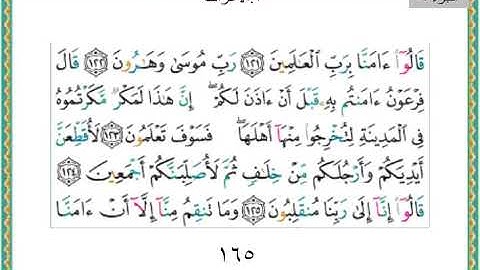 قَالُوٓا۟ ءَامَنَّا بِرَبِّ ٱلْعَـٰلَمِينَ ١٢١ رَبِّ مُوسَىٰ وَهَـٰرُونَ ١٢٢ قَالَ
فِرْعَوْنُ ءَامَنتُم بِهِۦ قَبْلَ أَنْ ءَاذَنَ لَكُمْ ۖ إِنَّ هَـٰذَا لَمَكْرٌ مَّكَرْتُمُوهُ
فِى ٱلْمَدِينَةِ لِتُخْرِجُوا۟ مِنْهَآ أَهْلَهَا ۖ فَسَوْفَ تَعْلَمُونَ ١٢٣ لَأُقَطِّعَنَّ
أَيْدِيَكُمْ وَأَرْجُلَكُم مِّنْ خِلَـٰفٍ ثُمَّ لَأُصَلِّبَنَّكُمْ أَجْمَعِينَ ١٢٤
قَالُوٓا۟ إِنَّآ إِلَىٰ رَبِّنَا مُنقَلِبُونَ ١٢٥ وَمَا تَنقِمُ مِنَّآ إِلَّآ أَنْ ءَامَنَّا
١٦٥